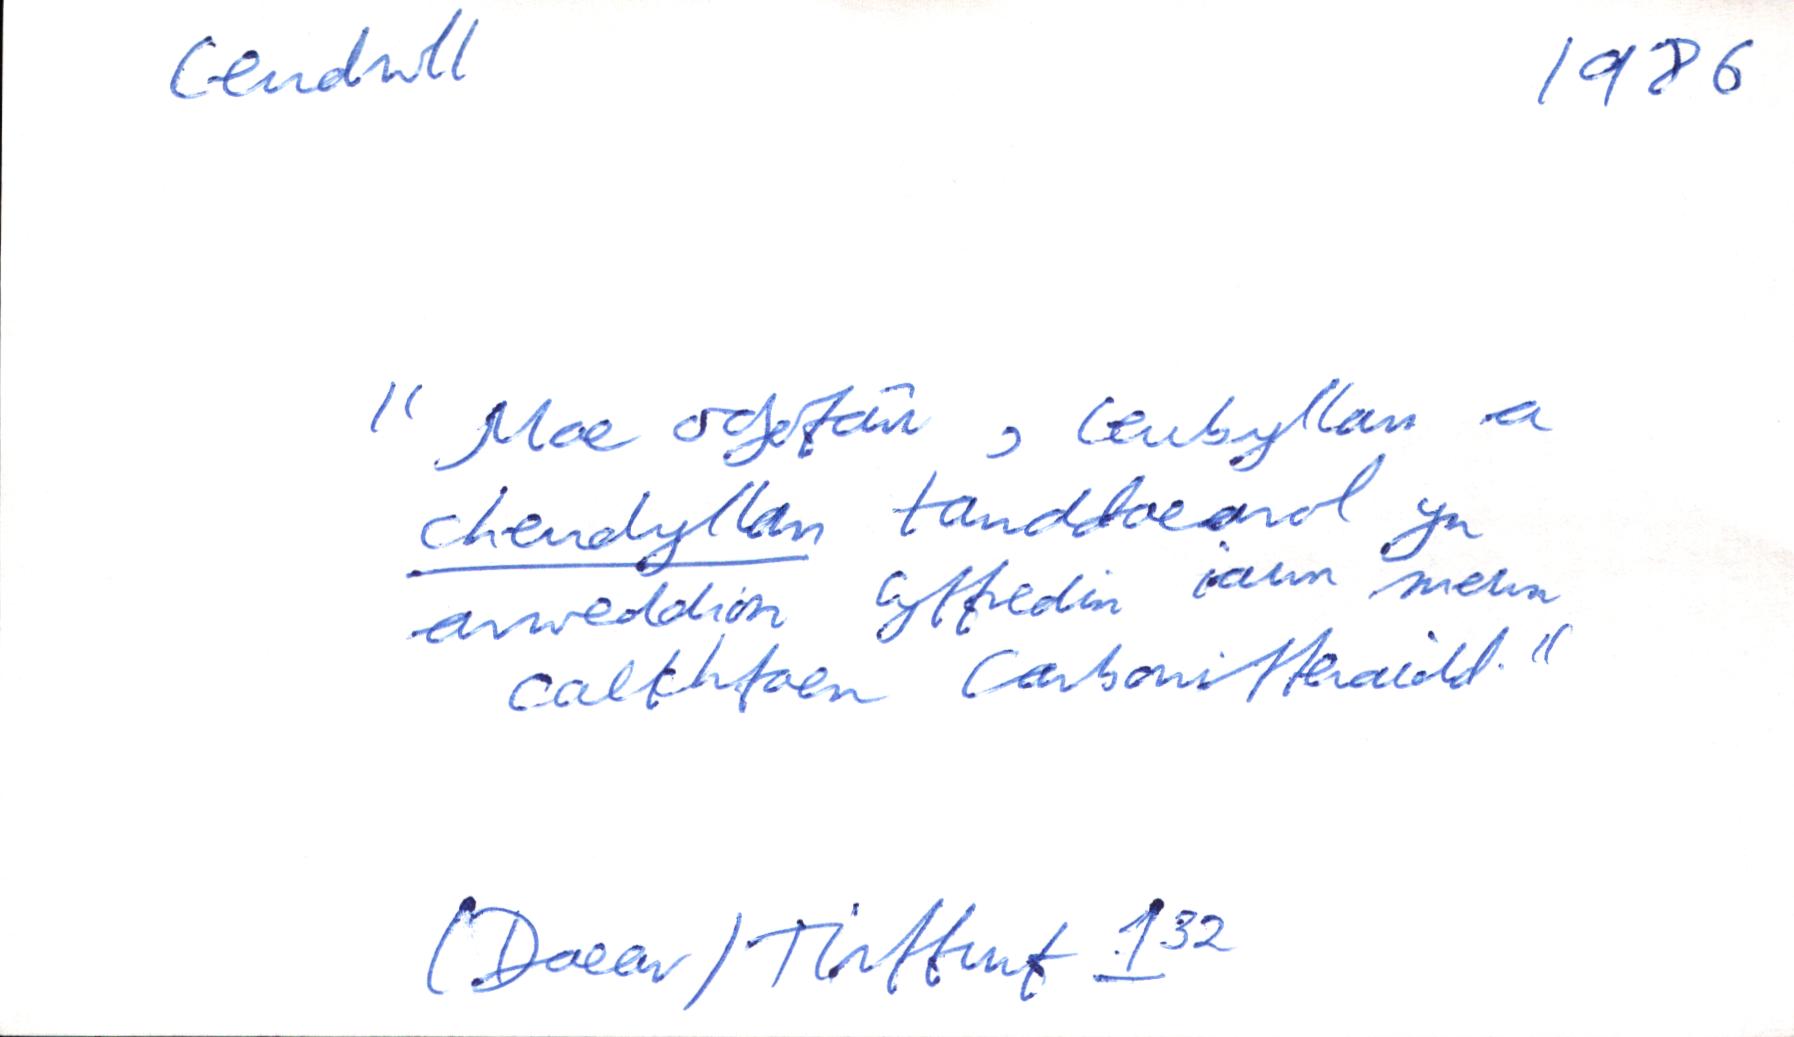 Ceudwll 1986
"Mae ogofâu, ceubyllau a
cheudyllau tanddaearol yn
arweddion cyffredin iawn mewn
calchfaen Carbonifferaidd."
(Daear) Tirffurf 1 32